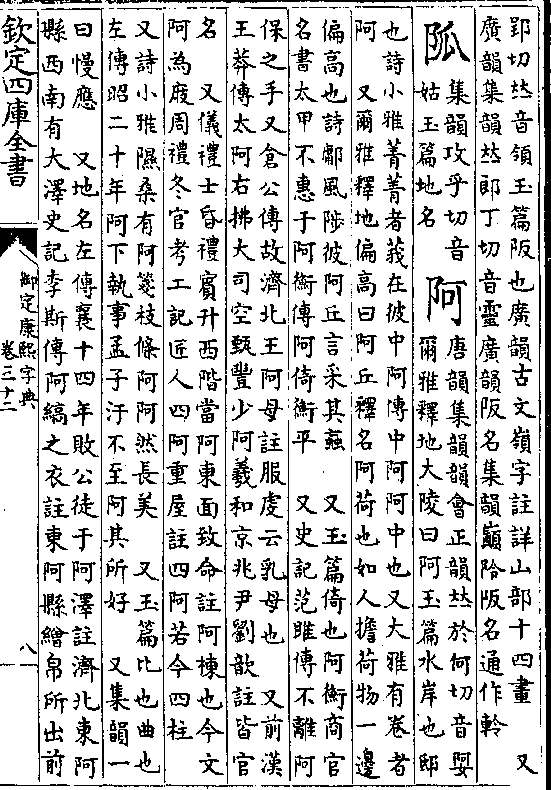 郢切𠀤音領玉篇阪也廣韻古文嶺字註詳山部十四畫 又
廣韻集韻𠀤郎丁切音靈廣韻阪名集韻巔阾阪名通作軨
集韻攻乎切音
姑玉篇地名
阿
唐韻集韻韻會正韻𠀤於何切音娿
爾雅釋地大陵曰阿玉篇水岸也邸
也詩小雅菁菁者莪在彼中阿傳中阿阿中也又大雅有卷者
阿 又爾雅釋地偏高曰阿丘釋名阿荷也如人擔荷物一邊
偏高也詩鄘風陟彼阿丘言采其蝱 又玉篇倚也阿衡商官
名書太甲不惠于阿衡傳阿倚衡平 又史記范雎傳不離阿
保之手又倉公傳故濟北王阿母註服虔云乳母也 又前漢
王莽傳太阿右拂大司空甄豐少阿羲和京兆尹劉歆註皆官
名 又儀禮士昏禮賓升西階當阿東面致命註阿棟也今文
阿為庪周禮冬官考工記匠人四阿重屋註四阿若今四柱
又詩小雅隰桑有阿箋枝條阿阿然長美 又玉篇比也曲也
左傳昭二十年阿下執事孟子汙不至阿其所好 又集韻一
曰慢應 又地名左傳襄十四年敗公徒于阿澤註濟北東阿
縣西南有大澤史記李斯傳阿縞之衣註東阿縣繒帛所出前
欽定四庫全書
御定康熙字典
卷三十二
八